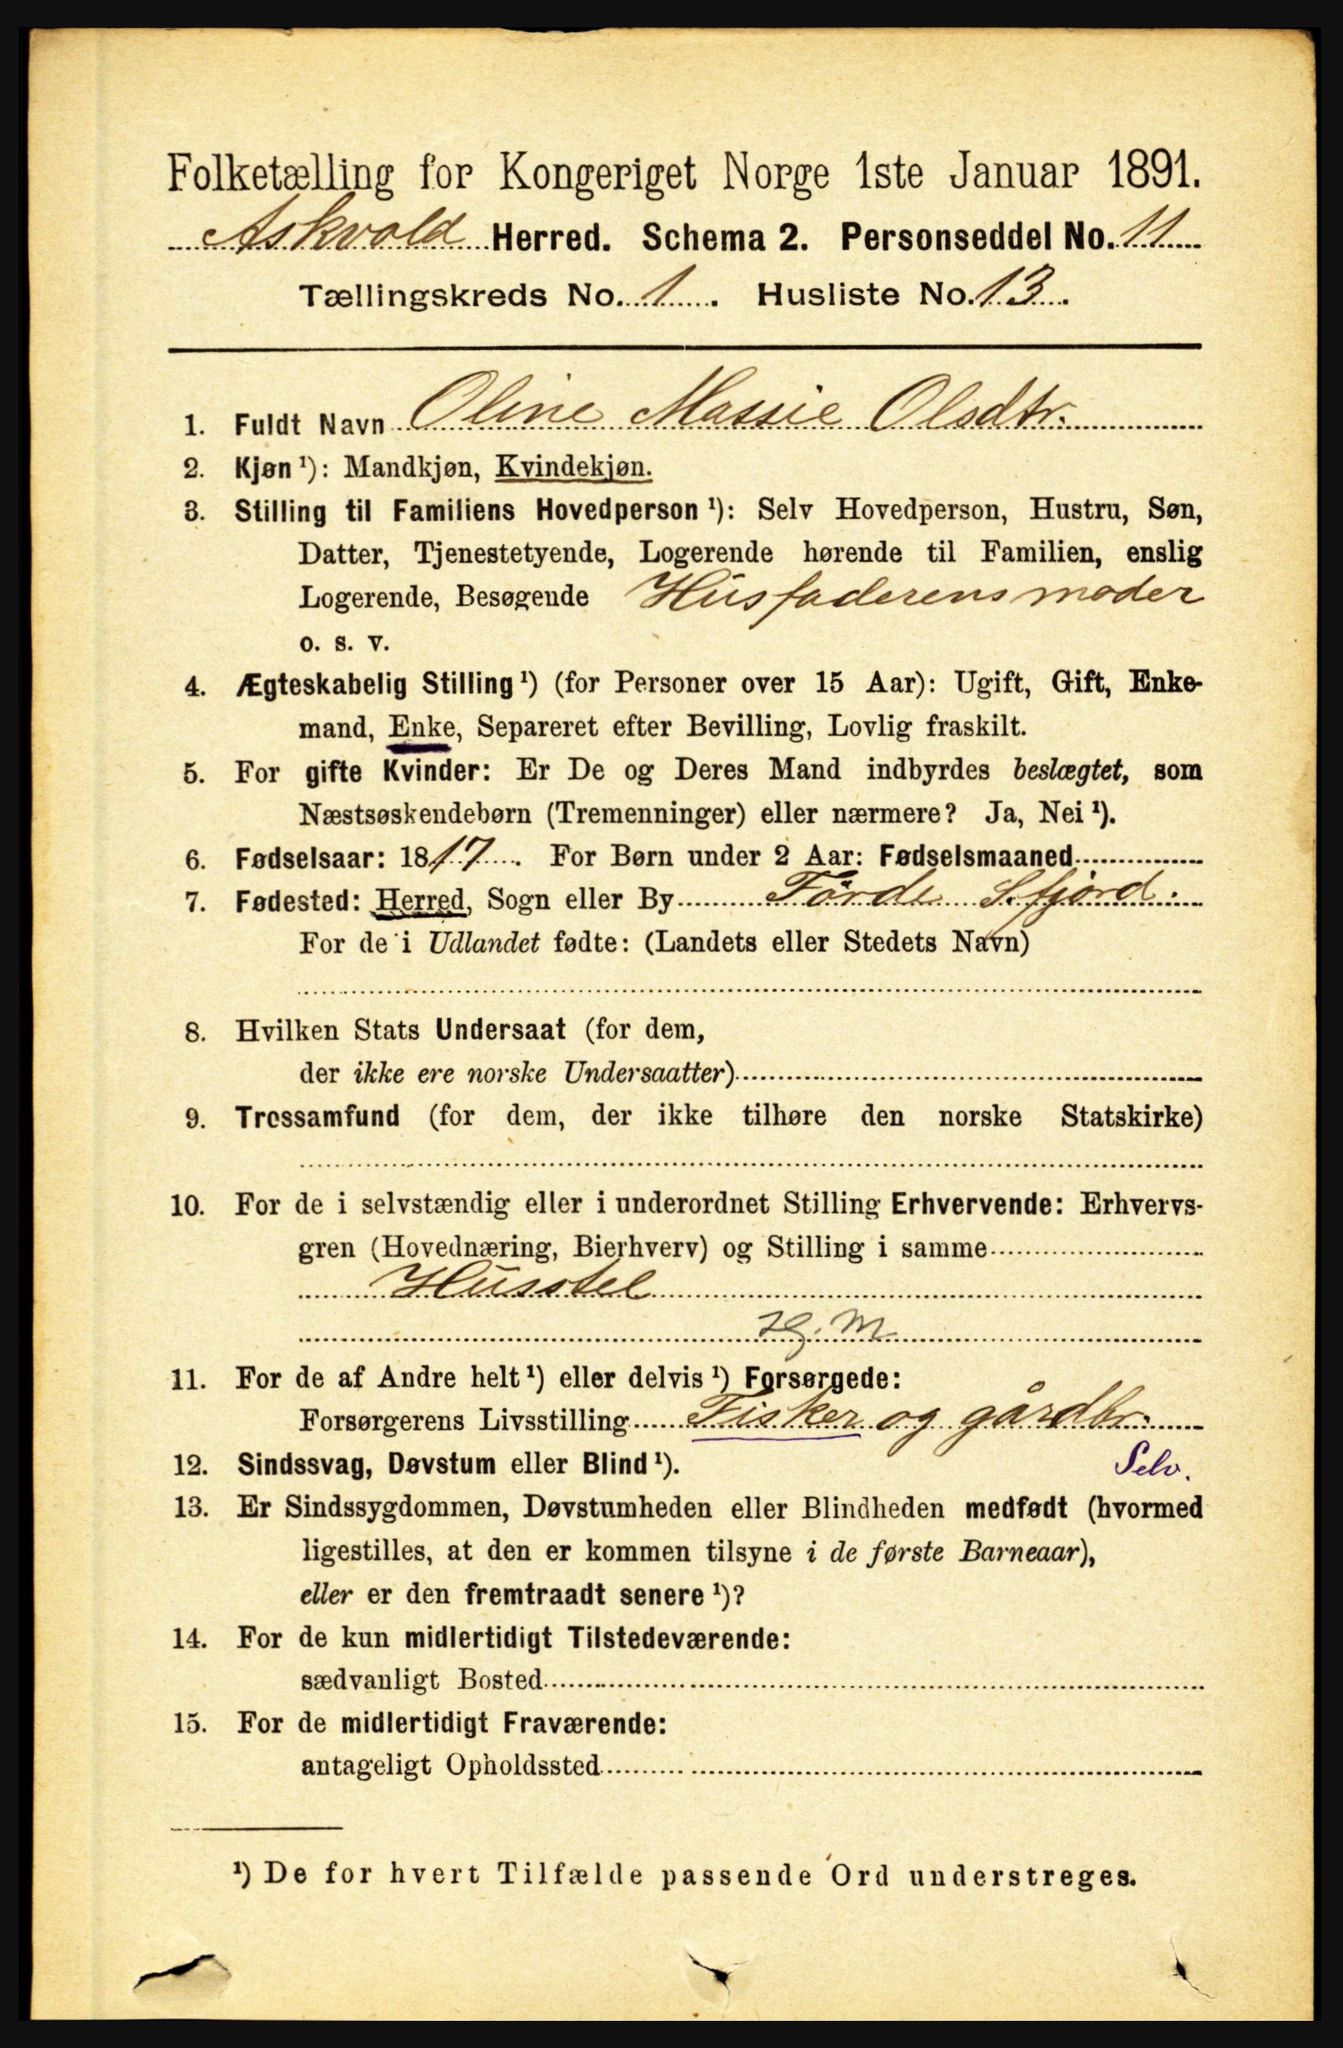 Folketælling for Kongeriget Norge 1ste Januar 1891.
Askvold Herred. Schema 2. Personseddel No. 11
Tællingskreds No. 1. Husliste No. 13.
1. Fuldt Navn Oline Massie Olsdtr.
2. Kjøn ¹): Mandkjøn, Kvindekjøn.
3. Stilling til Familiens Hovedperson ¹): Selv Hovedperson, Hustru, Søn,
Datter, Tjenestetyende, Logerende hørende til Familien, enslig
Logerende, Besøgende Husfaderens moder
o. s. v.
4. Ægteskabelig Stilling ¹) (for Personer over 15 Aar): Ugift, Gift, Enke-
mand, Enke, Separeret efter Bevilling, Lovlig fraskilt.
5. For gifte Kvinder: Er De og Deres Mand indbyrdes beslægtet, som
Næstsøskendebørn (Tremenninger) eller nærmere? Ja, Nei ¹).
6. Fødselsaar: 1817. For Børn under 2 Aar: Fødselsmaaned
7. Fødested: Herred, Sogn eller By Førde S.fjord.
For de i Udlandet fødte: (Landets eller Stedets Navn)
8. Hvilken Stats Undersaat (for dem,
der ikke ere norske Undersaatter)
9. Trossamfund (for dem, der ikke tilhøre den norske Statskirke)
10. For de i selvstændig eller i underordnet Stilling Erhvervende: Erhvervs-
gren (Hovednæring, Bierhverv) og Stilling i samme
Husstel
Hg. M
11. For de af Andre helt ¹) eller delvis ¹) Forsørgede:
Forsørgerens Livsstilling Fisker og gårdbr.
12. Sindssvag, Døvstum eller Blind ¹). Selv.
13. Er Sindssygdommen, Døvstumheden eller Blindheden medfødt (hvormed
ligestilles, at den er kommen tilsyne i de første Barneaar),
eller er den fremtraadt senere ¹)?
14. For de kun midlertidigt Tilstedeværende:
sædvanligt Bosted
15. For de midlertidigt Fraværende:
antageligt Opholdssted
¹) De for hvert Tilfælde passende Ord understreges.